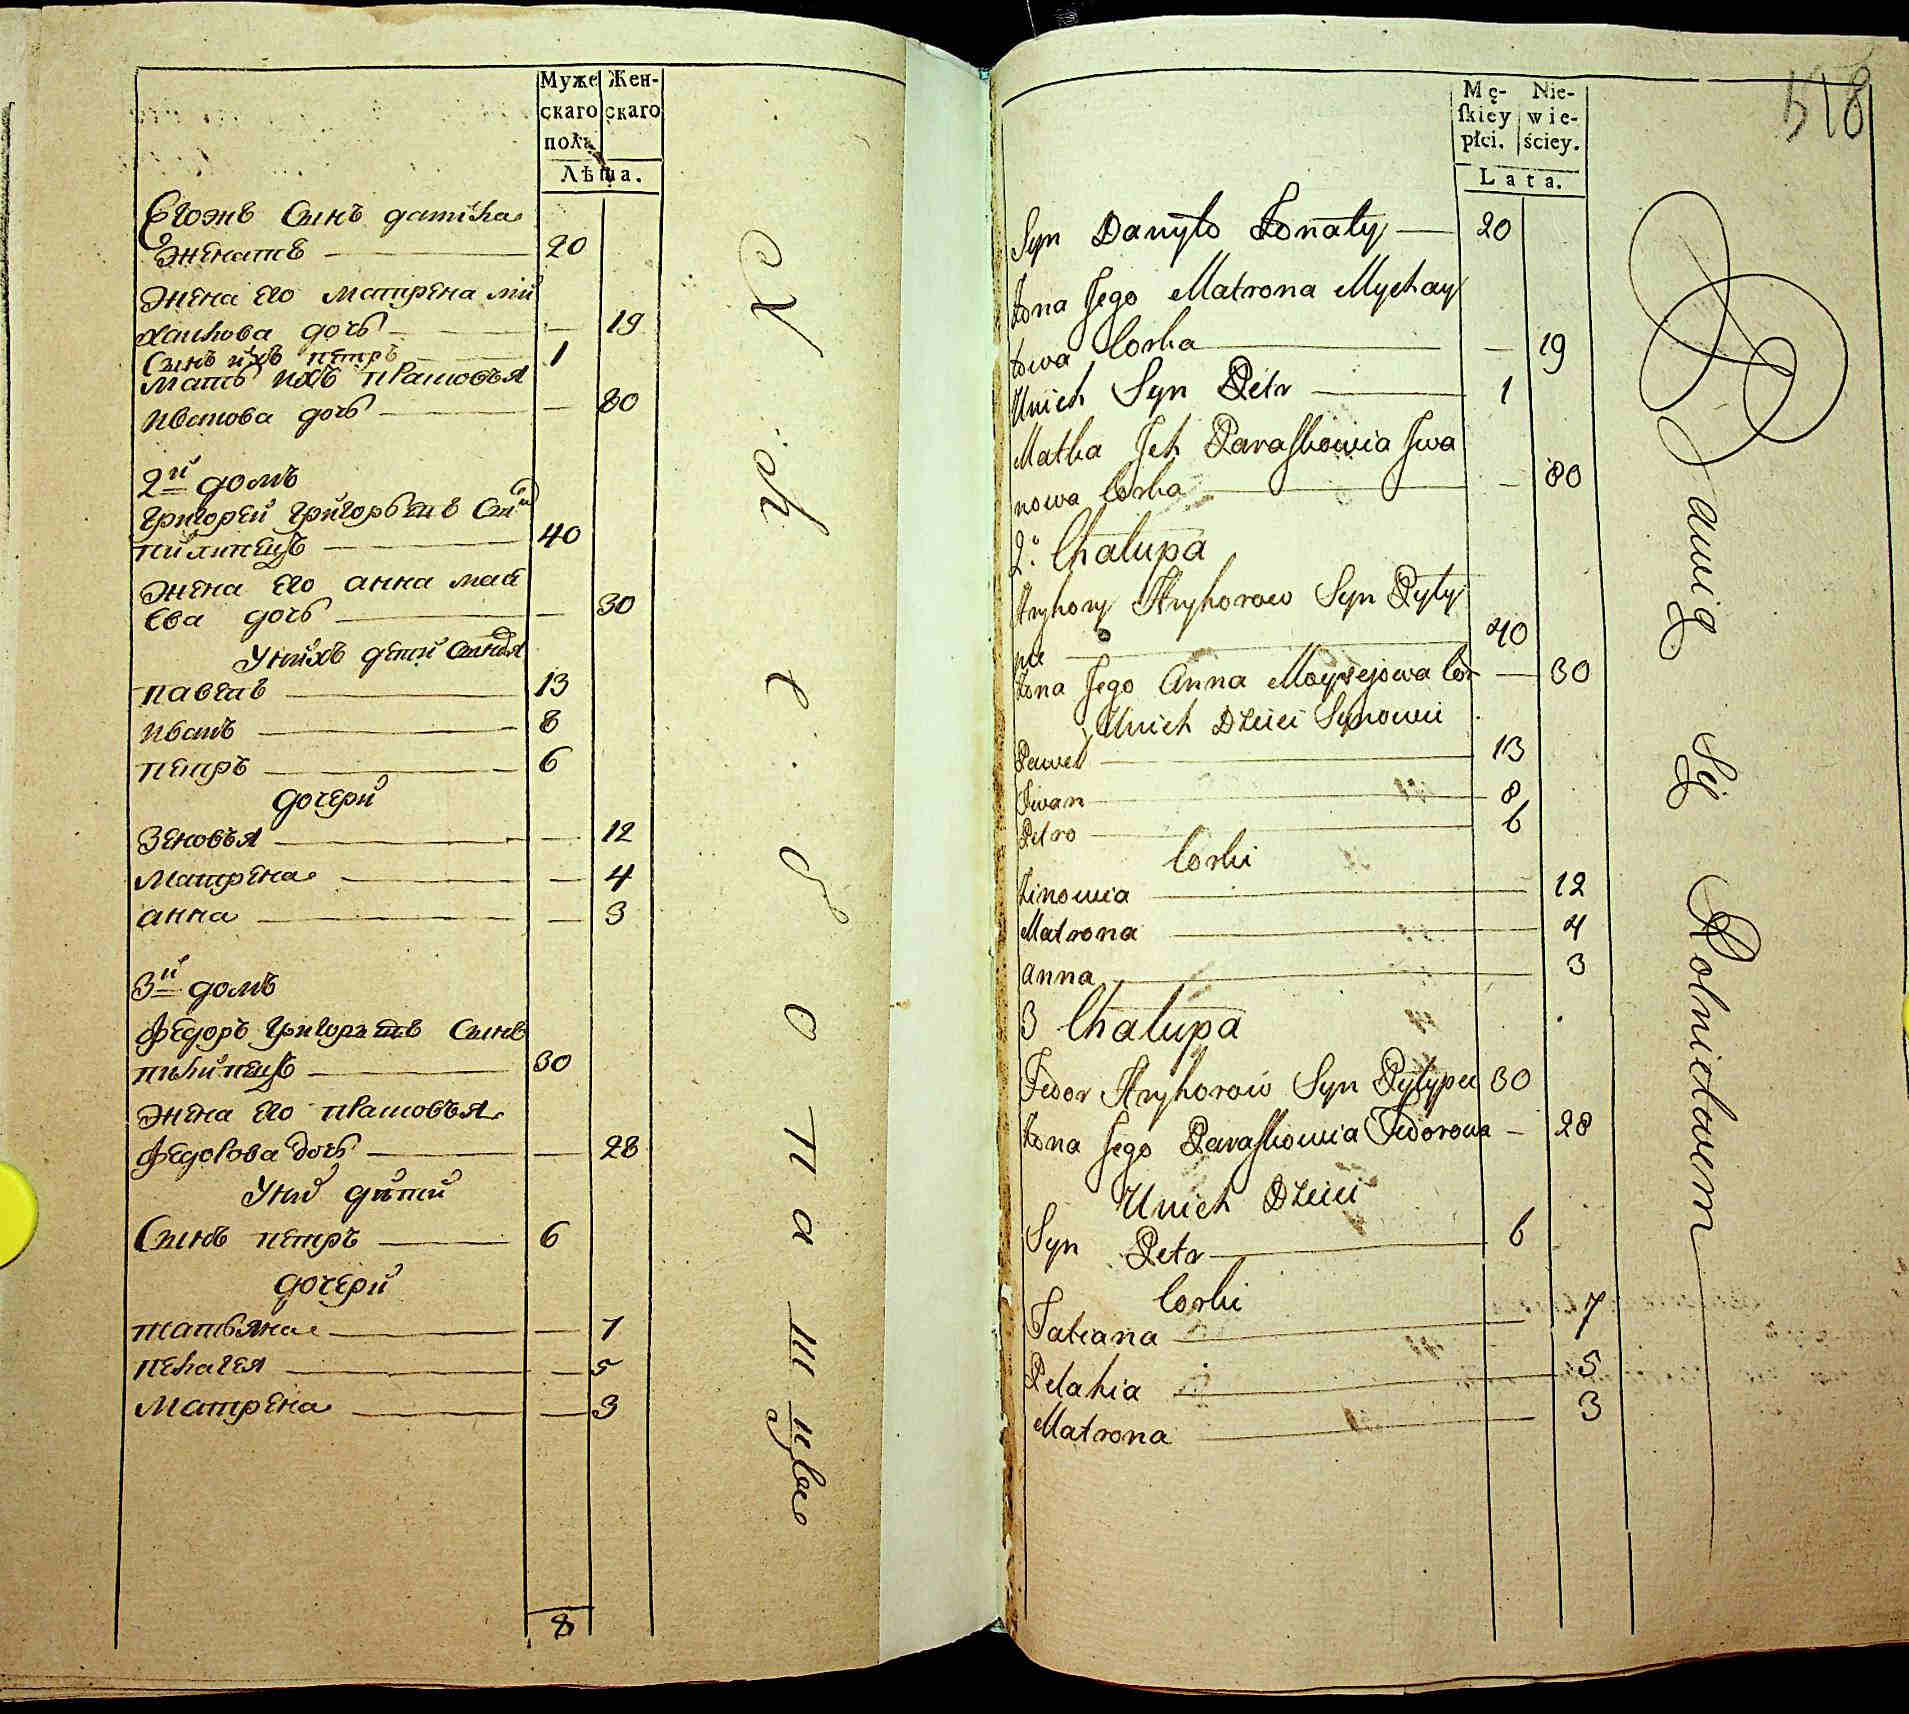 Муже
скаго
пола
Жен-
скаго
Лѣта.
Егожъ Сынъ данила
женатъ — 20
жена его матрена ми
хайлова дочь — 19
Сынъ ихъ петръ — 1
мать ихъ прасковъя
иванова дочь — 80
2й домъ
григорей григорьевъ Сынъ
пилипецъ — 40
жена его анна мосѣ
ева дочь — 30
Унихъ дети Сыновья
павелъ — 13
иванъ — 8
петръ — 6
дочери
Зеновъя — 12
матрена — 4
анна — 3
3й домъ
федоръ григорьевъ Сынъ
пилипецъ — 30
жена его прасковъя
федорова дочь — 28
Уних дѣти
Сынъ петръ — 6
дочери
татьяна — 7
пелагея — 5
матрена — 3
8
Хлебопашцы
Mę-
skiey
płci.
Nie-
wie-
ściey.
Lata.
Syn Danyło Żonaty — 20
Żona Jego Matrona Mychay
łowa Corka — 19
Unich Syn Petr — 1
Matka Ich Paraskowia Iwa
nowa Corka — 80
2. Chałupa
Hryhory Hryhorow Syn Pyły
pec — 40
Żona Jego Anna Moysejowa Cor — 30
Unich Dzieci Synowie
Paweł — 13
Iwan — 8
Petro — 6
Corki
Zinowia — 12
Matrona — 4
Anna — 3
3 Chałupa
Fedor Hryhorow Syn Pyłypec 30
Żona Jego Paraskowia Fedorowa — 28
Unich Dzieci
Syn Petr — 6
Corki
Tatiana — 7
Pelahia — 5
Matrona — 3
Bawią Się Rolnictwem